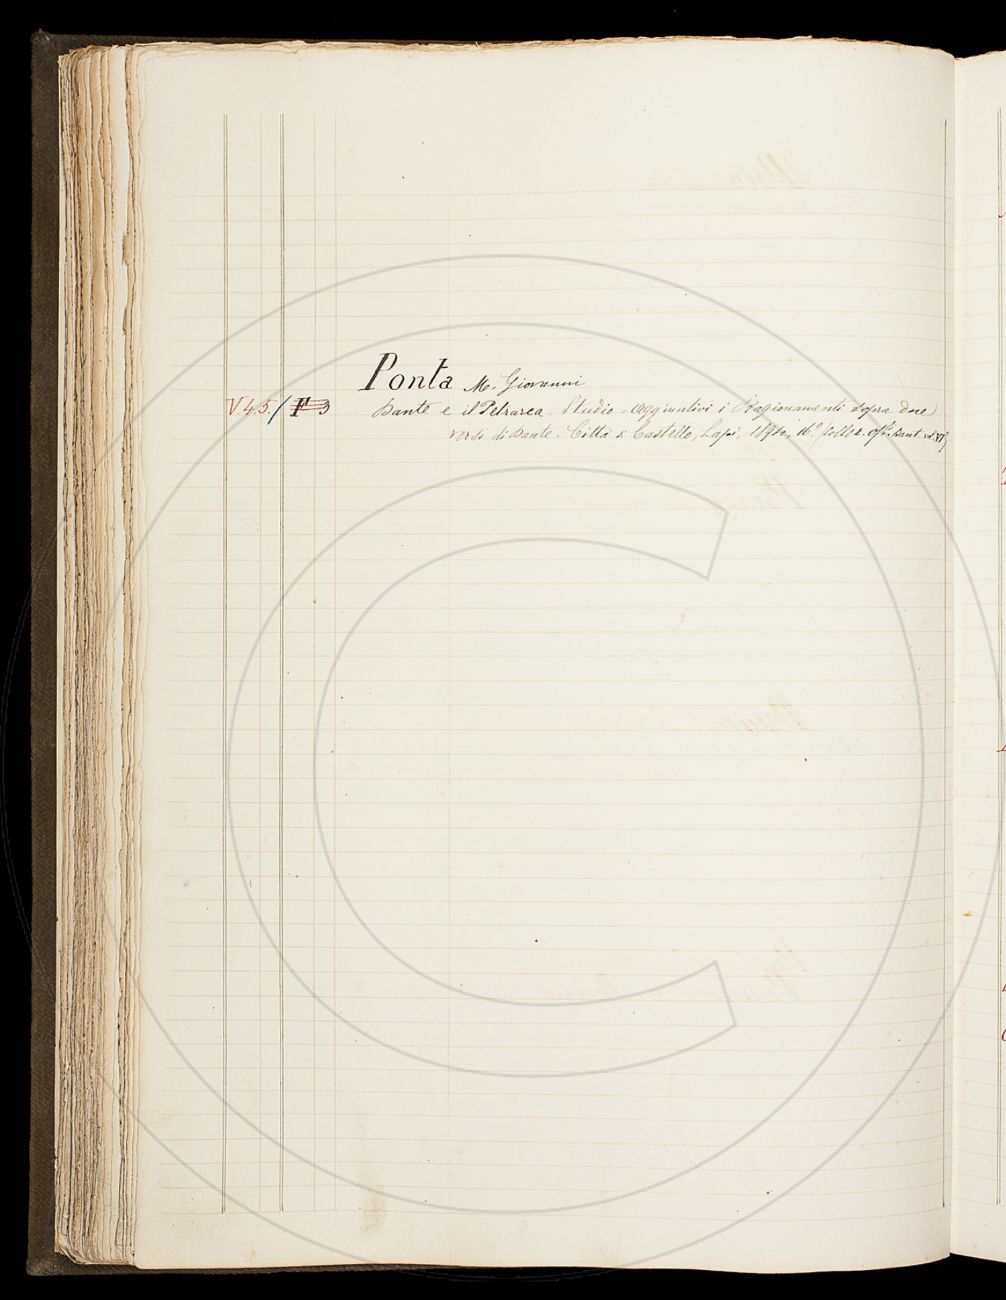 Ponta M. Giovanni
V. 4. 5. / F 3 Dante e il Petrarca. Studio - Aggiuntivi i Ragionamenti sopra due
versi di Dante. Città d. Castello, Lapi, 1894, 16.º Dant. XI